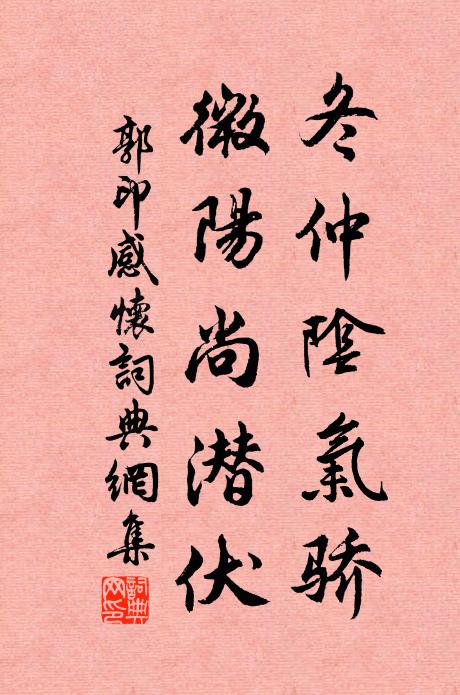 冬仲陰氣骄
微陽尚潜伏
郭印感懷詞典網集
詞典
網印